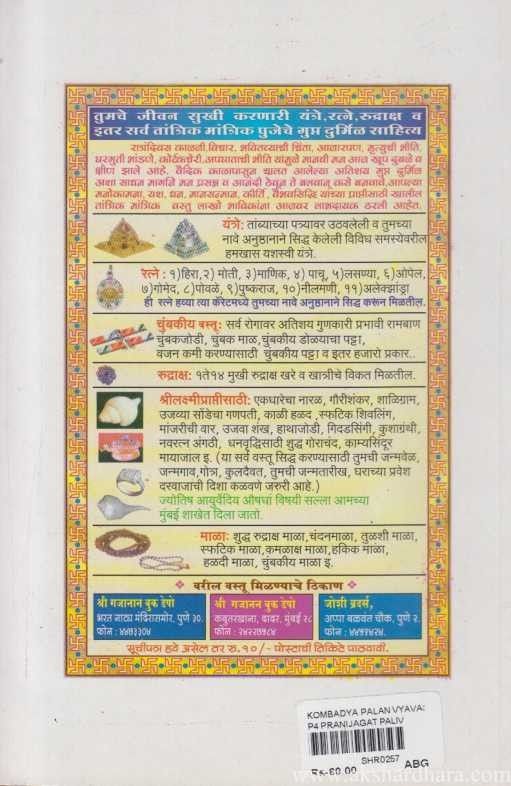 तुमचे जीवन सुखी करणारी यंत्रे,रत्ने,रुद्राक्ष व
इतर सर्व तांत्रिक मांत्रिक पुजेचे गुप्त दुर्मिळ साहित्य
रात्रंदिवस काळजी,विचार, भवितव्याची चिंता, आजारपण, मृत्युची भीति,
घरगुती भांडणे, कोर्टकचेरी,अपघाताची भीति यांमुळे मानवी मन आज खूप दुबळे व
क्षीण झाले आहे. वैदिक काळापासून चालत आलेल्या अतिशय गुप्त दुर्मिळ
अशा साधन मार्गाने मन प्रसन्न व आनंदी ठेवून ते बलवान् कसे बनवावे,आपल्या
मनोकामना, यश, धन, मानसन्मान, कीर्ति , वैभवसिद्धि यांच्या प्राप्तीसाठी खालील
तांत्रिक मांत्रिक वस्तु लाखो भाविकांना आजवर लाभदायक ठरली आहेत.
यंत्रे: तांब्याच्या पत्र्यावर उठवलेली व तुमच्या
नावे अनुष्ठानाने सिद्ध केलेली विविध समस्येवरील
हमखास यशस्वी यंत्रे.
रत्ने : १)हिरा,२) मोती, ३)माणिक, ४) पाचू, ५)लसण्या, ६)ओपेल,
७)गोमेद, ८)पोवळे, ९)पुष्कराज, १०)नीलमणी, ११)अलेक्झांड्रा
ही रत्ने हव्या त्या कॅरेटमध्ये तुमच्या नावे अनुष्ठानाने सिद्ध करून मिळतील.
चुंबकीय वस्तु: सर्व रोगावर अतिशय गुणकारी प्रभावी रामबाण
चुंबकजोडी, चुंबक माळ,चुंबकीय डोळयाचा पट्टा,
वजन कमी करण्यासाठी चुंबकीय पट्टा व इतर हजारो प्रकार..
रुद्राक्ष: १ते१४ मुखी रुद्राक्ष खरे व खात्रीचे विकत मिळतील.
श्रीलक्ष्मीप्राप्तीसाठी: एकधारेचा नारळ, गौरीशंकर, शाळिग्राम,
उजव्या सोंडेचा गणपती, काळी हळद ,स्फटिक शिवलिंग,
मांजरीची वार, उजवा शंख, हाथाजोडी, गिदडसिंगी, कुशाग्रंथी,
नवरत्न अंगठी, धनवृद्धिसाठी शुद्ध गोराचंद, काम्यसिंदूर
मायाजाल इ. (या सर्व वस्तू सिद्ध करण्यासाठी तुमची जन्मवेळ,
जन्मगाव,गोत्र, कुलदैवत, तुमची जन्मतारीख, घराच्या प्रवेश
दरवाजांची दिशा कळवणे जरुरी आहे.)
ज्योतिष आयुर्वेदिय औषधां विषयी सल्ला आमच्या
मुंबई शाखेत दिला जातो.
माळा: शुद्ध रुद्राक्ष माळा,चंदनमाळा, तुळशी माळा,
स्फटिक माळा,कमळाक्ष माळा,हकिक माळा,
हळदी माळा, चुंबकीय माळा इ.
❖ वरील वस्तू मिळण्याचे ठिकाण ❖
श्री गजानान बुक डेपो
भरत नाट्य मंदिरासमोर, पुणे ३०.
फोन : ४४७३३०४
श्री गजानन बुक डेपो
कबुतरखाना, दादर, मुंबई २८
फोन : २४२२७७८४
जोशी ब्रदर्स,
अप्पा बळवंत चौक, पुणे २.
फोन: ४४५१४२४.
सूचीपत्र हवे असेल तर रु.१०/- पोस्टाची तिकिटे पाठवावी.
KOMBADYA PALAN VYAVA:
P4 PRANIJAGAT PALIV
SHR0257 ABG
Rs-60.00
www.akshardhara.com